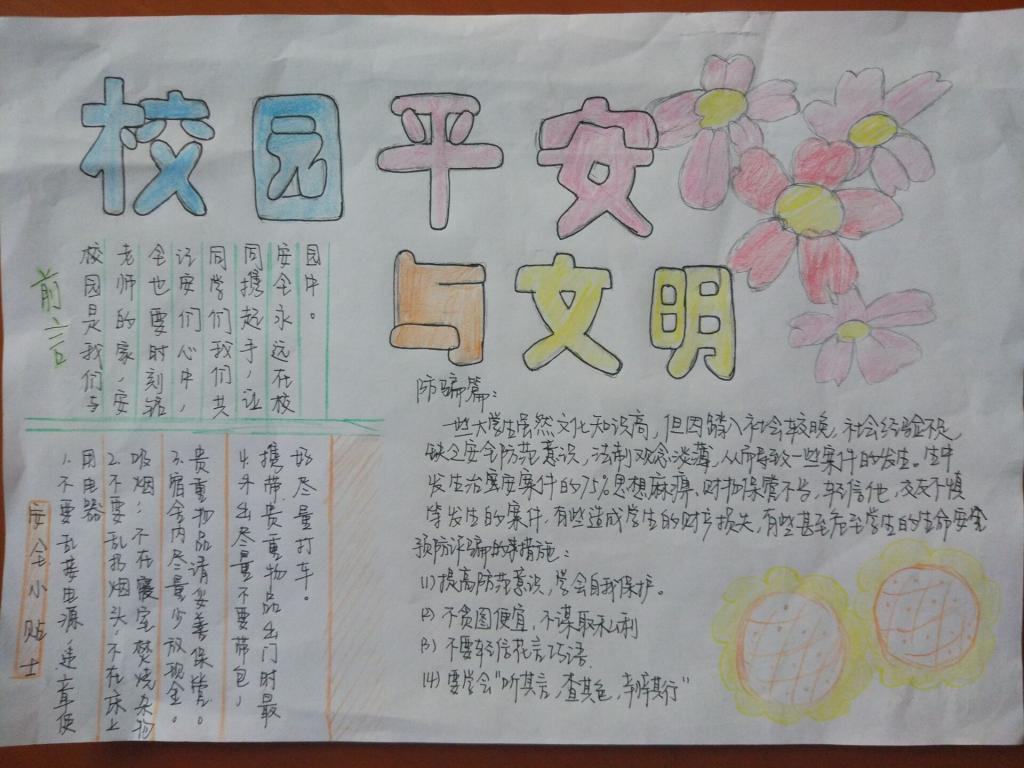 校园平安
与文明
前言
校园是我们与
老师的家,安
全也要时刻铭
记安们心中,
同学们我们共
同携起手,让
安全永远在校
园中。
安全小贴士
1.不要乱接电源,违章使
用电器
2.不要乱扔烟头,不在床上
吸烟,不在寝室焚烧杂物
3.宿舍内尽量少放现金。
贵重物品请妥善保管。
4.外出尽量不要带包,
携带贵重物品出门时最
好尽量打车。
防骗篇:
一些大学生虽然文化知识高,但因踏入社会较晚,社会经验不足,
缺乏安全防范意识,法制观念淡薄,从而导致一些案件的发生。生中
发生治安案件的75%思想麻痹、财物保管不当,轻信他,交友不慎
等发生的案件,有些造成学生的财产损失,有些甚至危至学生的生命安全
预防诈骗的措施:
(1)提高防范意识,学会自我保护。
(2)不贪图便宜,不谋取私利
(3)不要轻信花言巧语.
(4)要学会"听其言,查其色,辨其行"